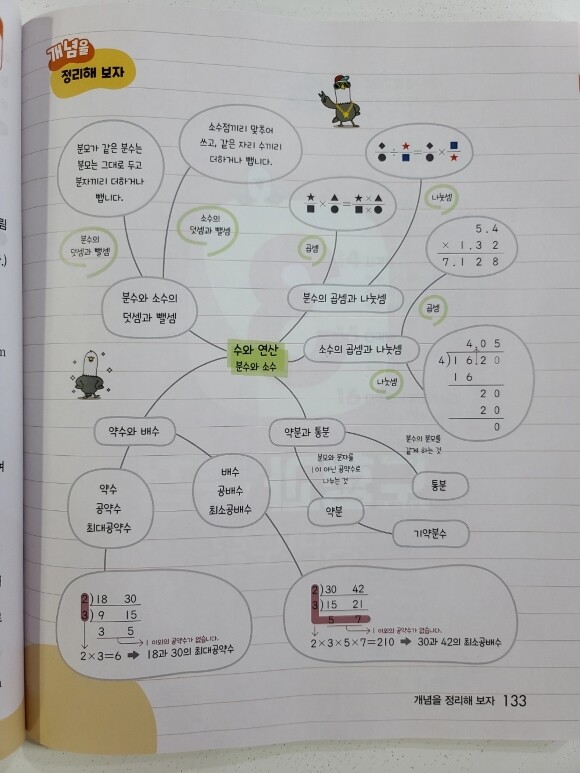 개념을
정리해 보자
분모가 같은 분수는
분모는 그대로 두고
분자끼리 더하거나
뺍니다.
소수점끼리 맞추어
쓰고, 같은 자리 수끼리
더하거나 뺍니다.
◆/● ÷ ★/■ = ◆/● × ■/★
★/■ × ▲/● = ★×▲/■×●
나눗셈
분수의
덧셈과 뺄셈
소수의
덧셈과 뺄셈
곱셈
5.4
× 1.3 2
7.1 2 8
분수와 소수의
덧셈과 뺄셈
분수의 곱셈과 나눗셈
곱셈
수와 연산
분수와 소수
소수의 곱셈과 나눗셈
나눗셈
4.0 5
4)1 6.2 0
1 6
2 0
2 0
0
약수와 배수
약분과 통분
분수의 분모를
같게 하는 것
분모와 분자를
1이 아닌 공약수로
나누는 것
약수
공약수
최대공약수
배수
공배수
최소공배수
통분
약분
기약분수
2)18 30
3) 9 15
3 5
1 이외의 공약수가 없습니다.
2×3=6 ➡ 18과 30의 최대공약수
2)30 42
3)15 21
5 7
1 이외의 공약수가 없습니다.
2×3×5×7=210 ➡ 30과 42의 최소공배수
개념을 정리해 보자 133